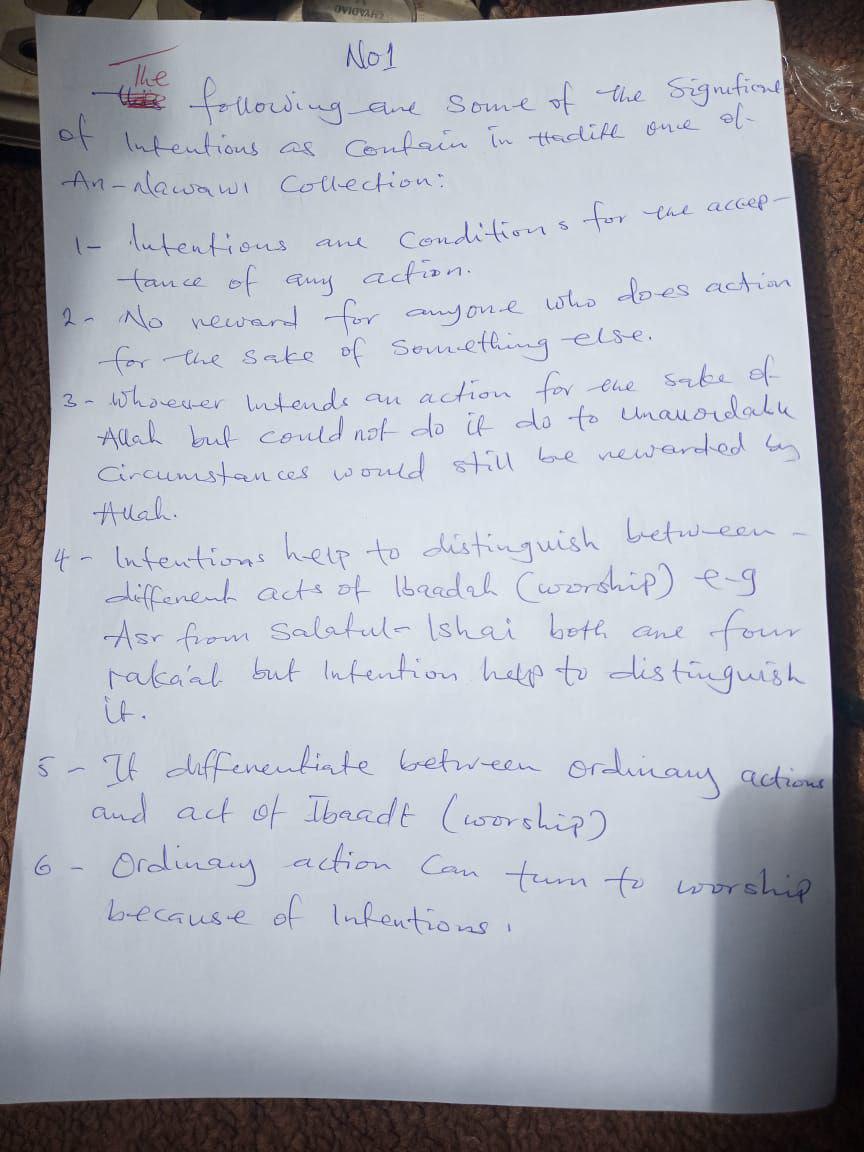 No1
The following are some of the Significane
of Intentions as Contain in Hadith one of
An-Nawawi Collection:
1- Intentions are Conditions for the accep-
tance of any action.
2- No reward for anyone who does action
for the sake of Something else.
3- Whoever Intends an action for the sake of
Allah but could not do it do to unavoidable
Circumstances would still be rewarded by
Allah.
4- Intentions help to distinguish between-
different acts of Ibaadah (worship) e-g
Asr from Salatul-Ishai both are four
raka'at but Intention help to distinguish
it.
5- It differentiate between ordinary actions
and act of Ibaadt (worship)
6- Ordinary action Can turn to worship
because of Intentions.